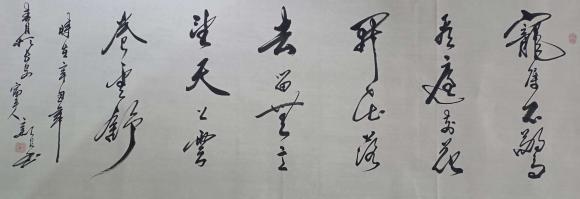 寵辱不驚
看庭前花
開花落
去留無意
望天上雲
卷雲舒
時在辛丑年
春月於長安